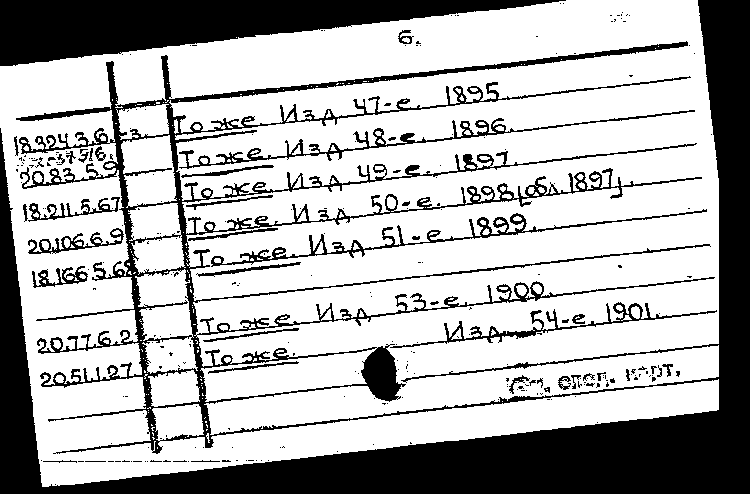 6.
18.324.3.6. -з. То же. Изд. 47-е. 1895.
20.83.5.9 То же. Изд. 48-е. 1896.
18.211.5.67 То же. Изд. 49-е. 1897.
20.106.6.9 То же. Изд. 50-е. 1898 [обл. 1897].
18.166.5.68 То же. Изд. 51-е. 1899.
20.77.6.2 То же. Изд. 53-е. 1900.
20.51.1.27 То же. Изд. 54-е. 1901.
След. карт.